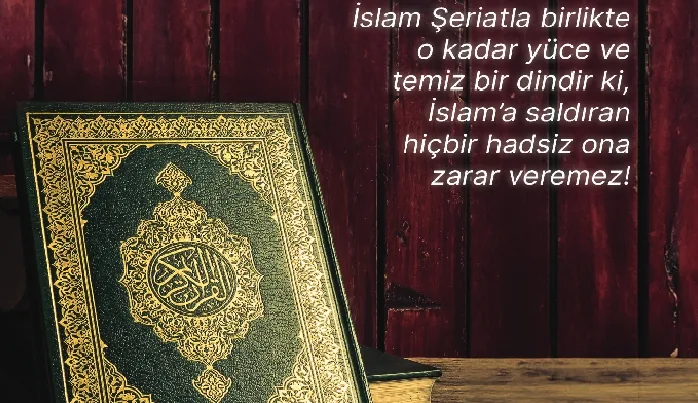 İslam Şeriatla birlikte
o kadar yüce ve
temiz bir dindir ki,
İslam'a saldıran
hiçbir hadsiz ona
zarar veremez!
القرآن الكريم